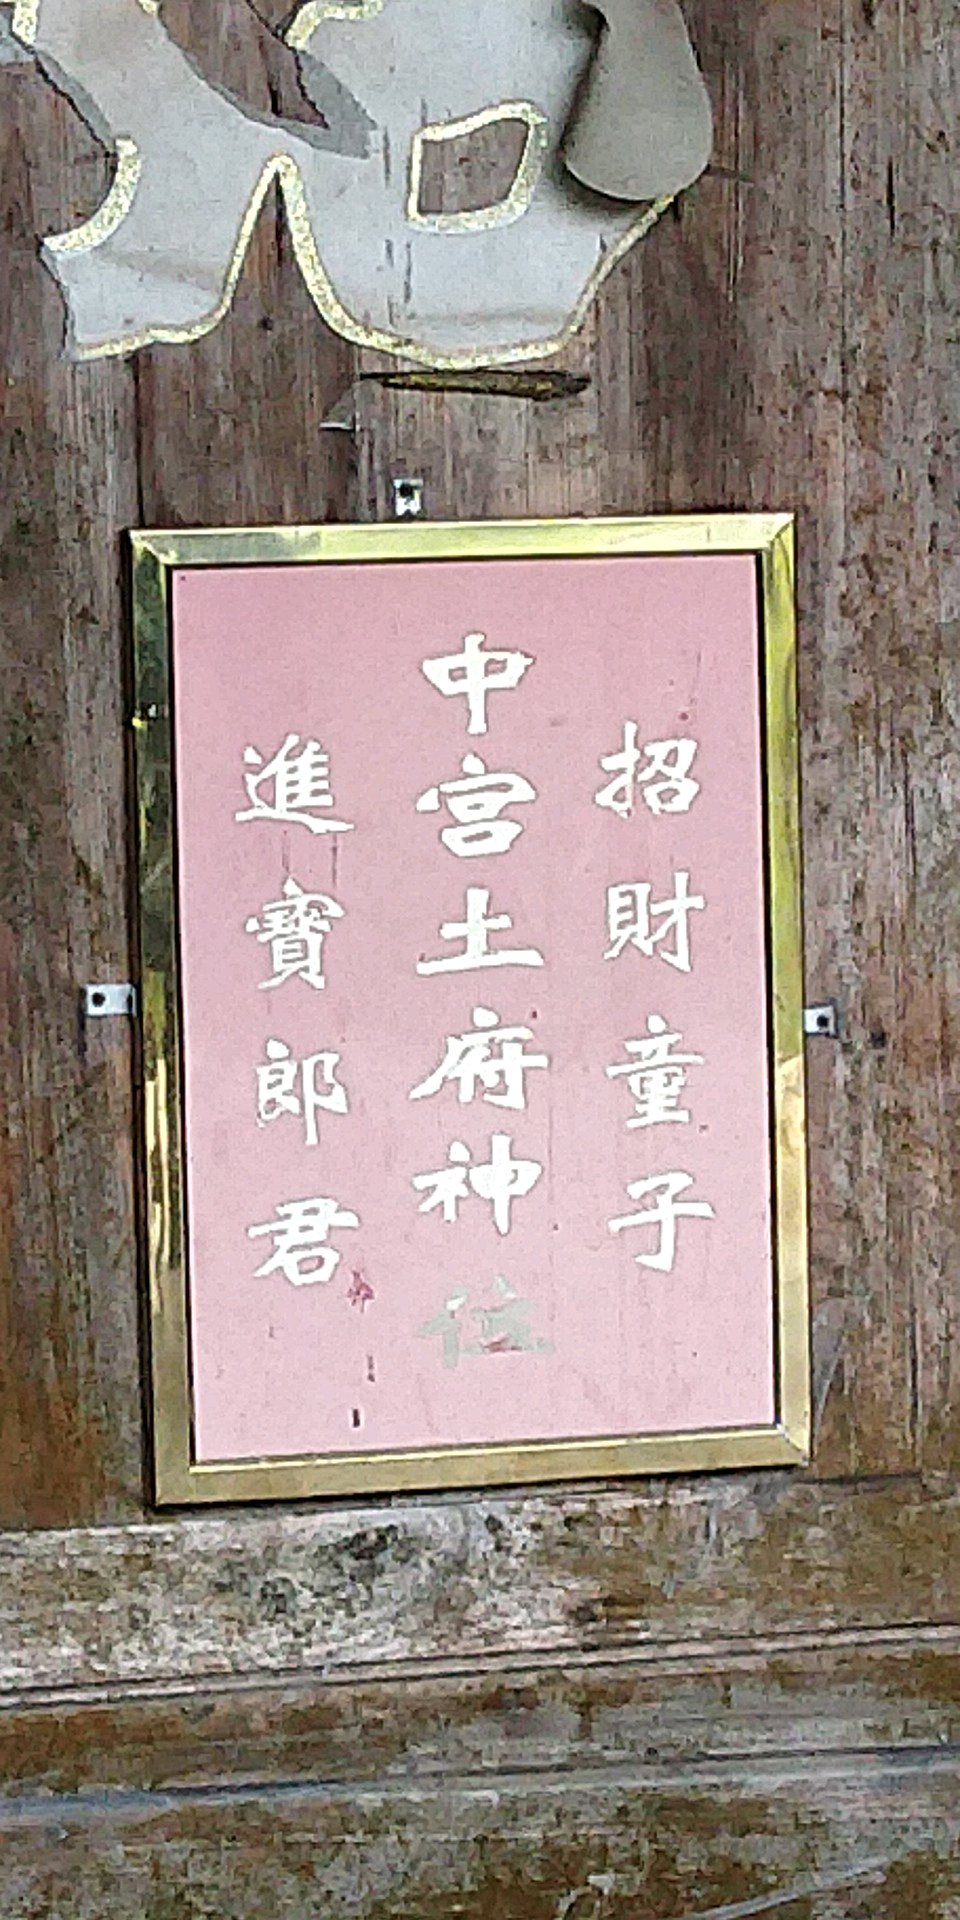 招財童子
中宮土府神位
進寶郎君